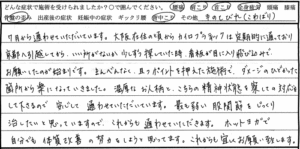 どんな症状で施術を受けられましたか？○で囲んでください。 腰痛 肩こり 頭痛 膝痛
骨盤の歪み 出産後の症状 妊娠中の症状 ギックリ腰 首こり その他 きのしびれ(こわばり)
7月から通わせていただいています。大阪在住の頃からカイロプラクティックは定期的に通っており
京都へ引越してから、いい所がないか少しずつ探していた時、看板が目に入り飛び込みで
お願いしたのが始まりです。まんべんなく、且つポイントを押さえた施術で、ダメージのひどかった
箇所から楽になっていきました。温厚なお人柄と、こちらの精神状態を察しての対応も
して下さるので 安心して 通わせていただいています。最も弱い股関節をじっくり
治したいと思っていますので、これからも通わせていただきます。ホットヨガで
自分でも体質改善の努力をしようと思ってます。これからも宜しくお願い致します。